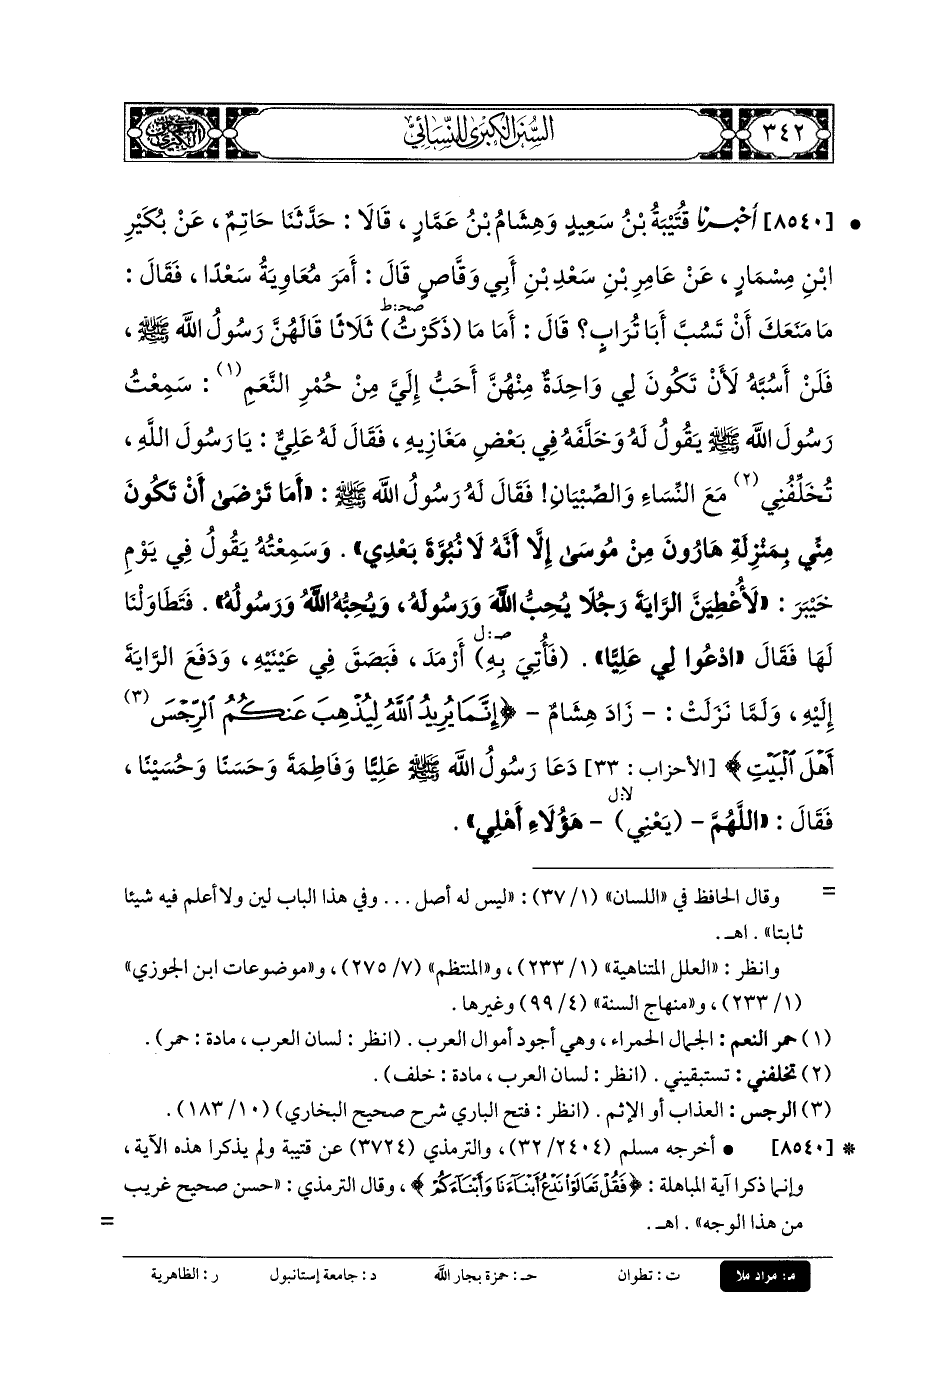 ٣٤٢
السنن الكبرى للنسائي
• [٨٥٤٠] أخبرنا قُتَيْبَةُ بْنُ سَعِيدٍ وَهِشَامُ بْنُ عَمَّارٍ ، قَالَا : حَدَّثَنَا حَاتِمٌ ، عَنْ بُكَيْرِ
ابْنِ مِسْمَارٍ ، عَنْ عَامِرِ بْنِ سَعْدِ بْنِ أَبِي وَقَّاصٍ قَالَ : أَمَرَ مُعَاوِيَةُ سَعْدًا ، فَقَالَ :
صحـ:ط
مَا مَنَعَكَ أَنْ تَسُبَّ أَبَا تُرَابٍ؟ قَالَ : أَمَا مَا (ذَكَرْتُ) ثَلَاثًا قَالَهُنَّ رَسُولُ اللَّه ﷺ ،
فَلَنْ أَسُبَّهُ لَأَنْ تَكُونَ لِي وَاحِدَةٌ مِنْهُنَّ أَحَبُّ إِلَيَّ مِنْ حُمْرِ النَّعَمِ (١) : سَمِعْتُ
رَسُولَ اللَّه ﷺ يَقُولُ لَهُ وَخَلَّفَهُ فِي بَعْضِ مَغَازِيهِ ، فَقَالَ لَهُ عَلِيٌّ : يَا رَسُولَ اللَّهِ ،
تُخَلِّفُنِي (٢) مَعَ النِّسَاءِ وَالصِّبْيَانِ! فَقَالَ لَهُ رَسُولُ اللَّه ﷺ : «أَمَا تَرْضَى أَنْ تَكُونَ
مِنِّي بِمَنْزِلَةِ هَارُونَ مِنْ مُوسَى إِلَّا أَنَّهُ لَا نُبُوَّةَ بَعْدِي» . وَسَمِعْتُهُ يَقُولُ فِي يَوْمِ
خَيْبَرَ : «لَأُعْطِيَنَّ الرَّايَةَ رَجُلًا يُحِبُّ اللَّهَ وَرَسُولَهُ ، وَيُحِبُّهُ اللَّهُ وَرَسُولُهُ» . فَتَطَاوَلْنَا
صـ:ل
لَهَا فَقَالَ «ادْعُوا لِي عَلِيًّا» . (فَأُتِيَ بِهِ) أَرْمَدَ ، فَبَصَقَ فِي عَيْنَيْهِ ، وَدَفَعَ الرَّايَةَ
إِلَيْهِ ، وَلَمَّا نَزَلَتْ : - زَادَ هِشَامٌ - ﴿إِنَّمَا يُرِيدُ ٱللَّهُ لِيُذْهِبَ عَنكُمُ ٱلرِّجْسَ (٣)
أَهْلَ ٱلْبَيْتِ﴾ [الأحزاب : ٣٣] دَعَا رَسُولُ اللَّه ﷺ عَلِيًّا وَفَاطِمَةَ وَحَسَنًا وَحُسَيْنًا ،
لا:ل
فَقَالَ : «اللَّهُمَّ - (يَعْنِي) - هَؤُلَاءِ أَهْلِي» .
= وقال الحافظ في «اللسان» (١/ ٣٧) : «ليس له أصل ... وفي هذا الباب لين ولا أعلم فيه شيئا
ثابتا» . اهـ .
وانظر : «العلل المتناهية» (١/ ٢٣٣) ، و«المنتظم» (٧/ ٢٧٥) ، و«موضوعات ابن الجوزي»
(١/ ٢٣٣) ، و«منهاج السنة» (٤/ ٩٩) وغيرها .
(١) حمر النعم : الجمال الحمراء ، وهي أجود أموال العرب . (انظر : لسان العرب ، مادة : حمر) .
(٢) تخلفني : تستبقيني . (انظر : لسان العرب ، مادة : خلف) .
(٣) الرجس : العذاب أو الإثم . (انظر : فتح الباري شرح صحيح البخاري) (١٠/ ١٨٣) .
* [٨٥٤٠] • أخرجه مسلم (٢٤٠٤/ ٣٢) ، والترمذي (٣٧٢٤) عن قتيبة ولم يذكرا هذه الآية ،
وإنما ذكرا آية المباهلة : ﴿فَقُلْ تَعَالَوْاْ نَدْعُ أَبْنَآءَنَا وَأَبْنَآءَكُمْ﴾ ، وقال الترمذي : «حسن صحيح غريب
من هذا الوجه» . اهـ . =
م: مراد ملا ت : تطوان حـ : حمزة بجار الله د : جامعة إستانبول ر : الظاهرية